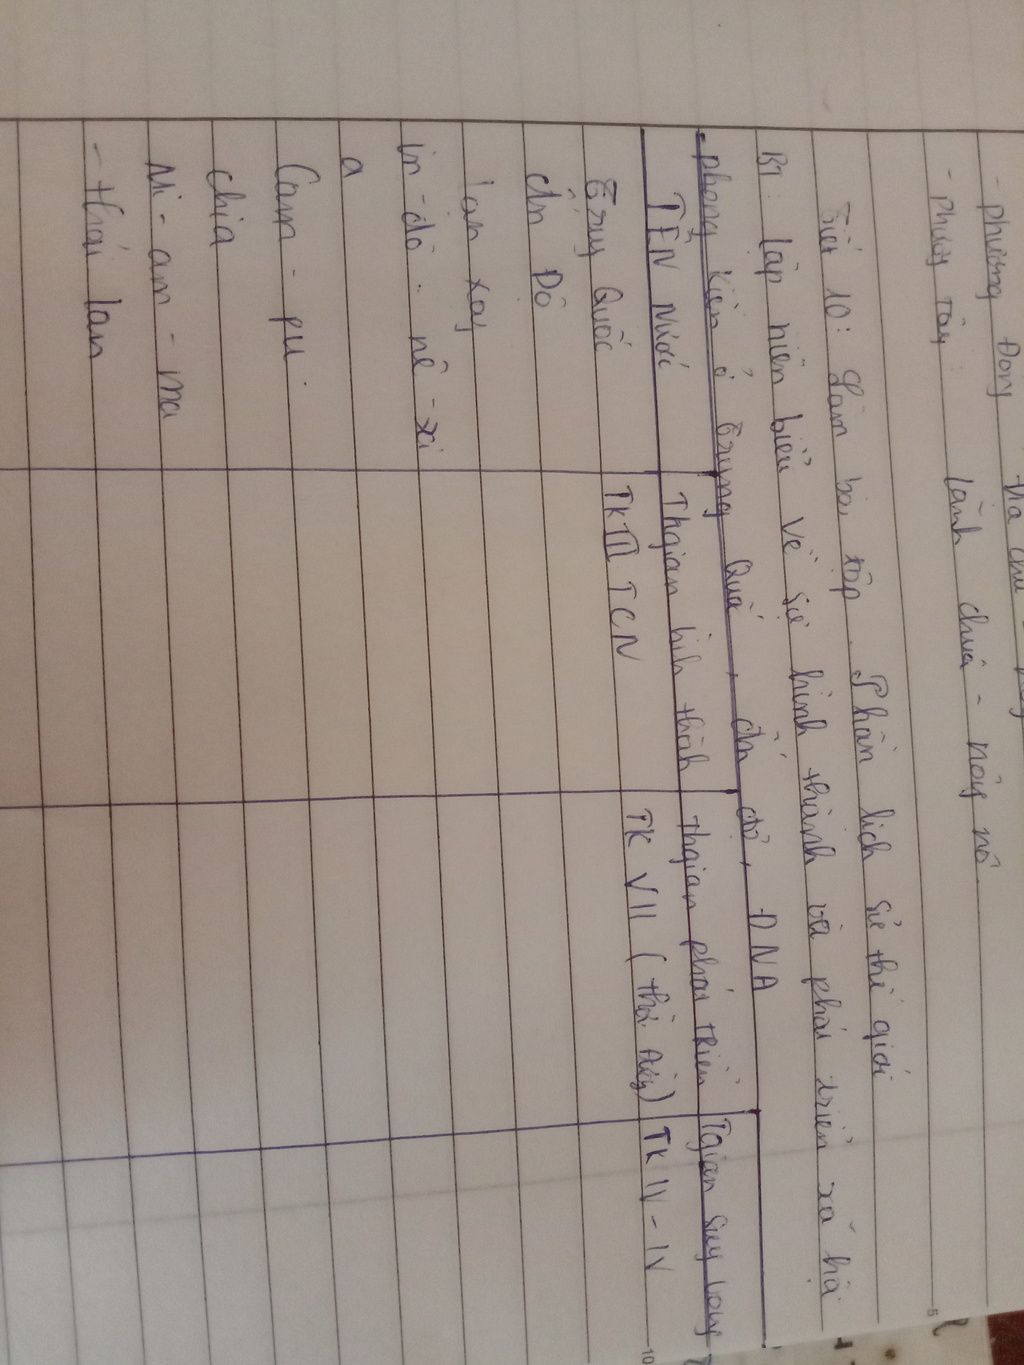 - phương Đông địa chủ
- phương tây : lãnh chúa - nông nô
Tiết 10: Làm bài tập. Phần lịch sử thế giới
B1: lập niên biểu về sự hình thành và phát triển xã hộ
phong kiến ở Trung Quố, ấn độ, ĐNA
TÊN Nước Thgian hình thành thgian phát triển Tgian suy vong
Trung Quốc TK III TCN TK VII (thờ đường) TK IV - IV
ấn Độ
lan xag
in - đô - nê - xi
a
Cam - pu -
chia
Mi - an - ma
- thái lan
10